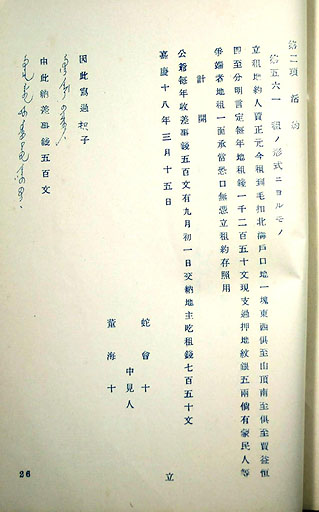 第二項 活約
第五六一 租ノ形式ニヨルモノ
立租地約人賈正元今租到毛扣北海戸口地一塊東西俱至山頂南至俱至賈益恒
四至分明言定每年地租錢一千二百五十文現支過押地紋銀五兩倘有蒙民人等
爭端者地租一面承當恐口無憑立租約存照用
計開
公爺每年收差事錢五百文有九月初一日交納地主吃租錢七百五十文
嘉慶十八年三月十五日 立
蛇曾十
中見人
董海十
因此寫過 子
由此納差事錢五百文
26